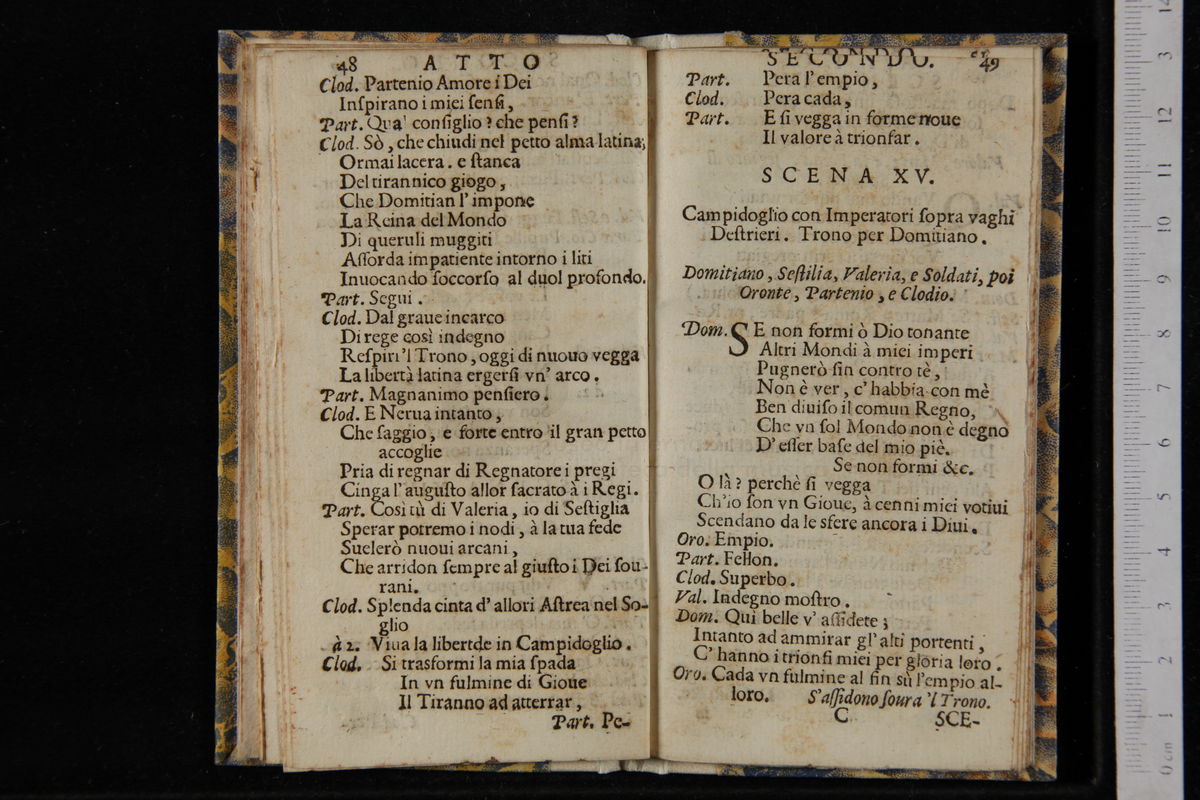 48 ATTO
Clod. Partenio Amore i Dei
Inſpirano i miei ſenſi,
Part. Qual conſiglio? che penſi?
Clod. Sò, che chiudi nel petto alma latina;
Ormai lacera. e ſtanca
Del tirannico giogo,
Che Domitian l'impone
La Reina del Mondo
Di queruli muggiti
Aſſorda impatiente intorno i liti
Inuocando ſoccorſo al duol profondo.
Part. Segui.
Clod. Dal graue incarco
Di rege così indegno
Reſpiri 'l Trono, oggi di nuouo vegga
La libertà latina ergerſi vn' arco.
Part. Magnanimo penſiero.
Clod. E Nerua intanto,
Che ſaggio, e forte entro il gran petto
accoglie
Pria di regnar di Regnatore i pregi
Cinga l'auguſto allor ſacrato à i Regi.
Part. Cosi tù di Valeria, io di Seſtiglia
Sperar potremo i nodi, à la tua fede
Suelerò nuoui arcani,
Che arridon ſempre al giuſto i Dei ſou-
rani.
Clod. Splenda cinta d'allori Aſtrea nel So-
glio
à 2. Viua la libertde in Campidoglio.
Clod. Si trasformi la mia ſpada
In vn fulmine di Gioue
Il Tiranno ad atterrar,
Part. Pe-
SECONDO. 49
Part. Pera l'empio,
Clod. Pera cada,
Part. E ſi vegga in forme noue
Il valore à trionfar.
SCENA XV.
Campidoglio con Imperatori ſopra vaghi
Deſtrieri. Trono per Domitiano.
Domitiano, Seſtilia, Valeria, e Soldati, poi
Oronte, Partenio, e Clodio.
Dom. SE non formi ò Dio tonante
Altri Mondi à miei imperi
Pugnerò ſin contro tè,
Non è ver, c'habbia con mè
Ben diuiſo il comun Regno,
Che vn ſol Mondo non è degno
D'eſſer baſe del mio piè.
Se non formi &c.
O là? perchè ſi vegga
Ch'io ſon vn Gioue, à cenni miei votiui
Scendano da le sfere ancora i Diui.
Oro. Empio.
Part. Fellon.
Clod. Superbo.
Val. Indegno moſtro.
Dom. Quì belle v'aſſidete;
Intanto ad ammirar gl'alti portenti,
C'hanno i trionfi miei per gloria loro.
Oro. Cada vn fulmine al fin sù l'empio al-
loro. S'aſſidono ſoura 'l Trono.
C SCE-